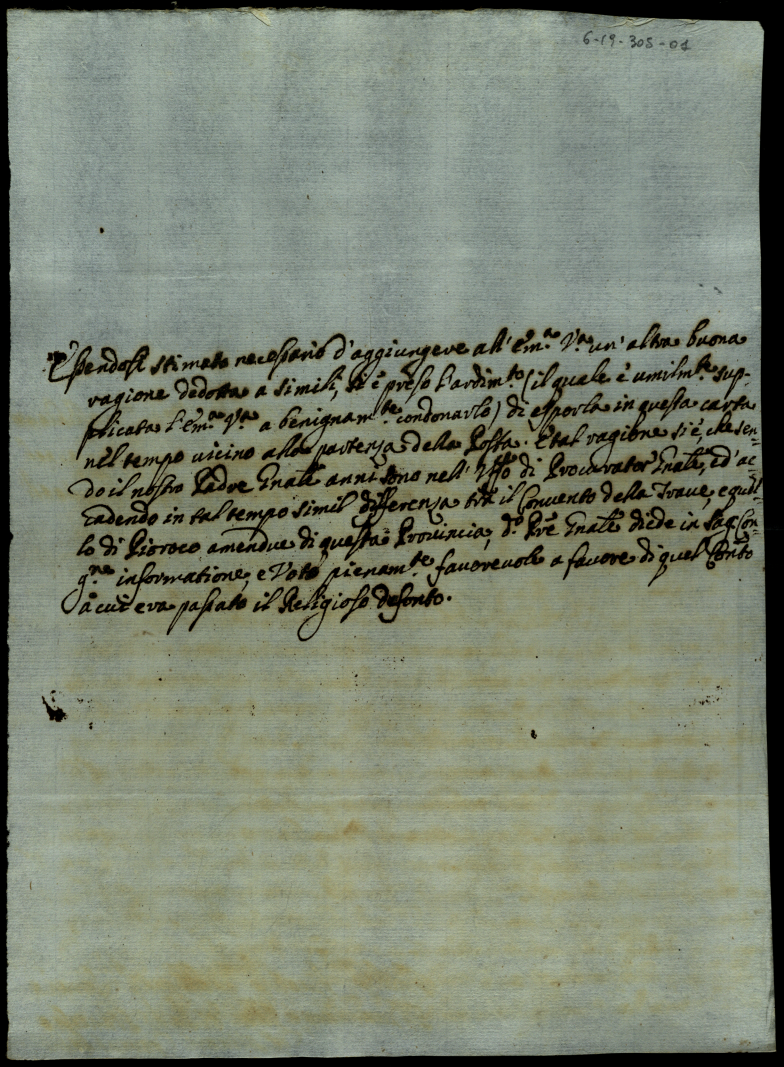 6-19-305-01
Essendosi stimato necessario d'aggiungere all' Em.ª V.ª un' altra buona
ragione dedotta a simili, si è preso l'ardim.to (il quale è umilm.te sup-
plicata l'Em.ª V.ª a benignam.te condonarlo) di esporla in questa carta
nel tempo vicino alla partenza della Posta. E tal ragione si è, che sen-
do il nostro Padre Gnãle anni sono nell' Uffo di Procurator Gnãle, ed' ac-
cadendo in tal tempo simil differenza trà il Convento della Trave, e quel-
lo di Pioroco amendue di questa Provincia, d.º Prẽ Gnãle diede in Sag. Con-
g.ne informatione, e Voto pienam.te favorevole a favore di quel Convto
à cui era passato il Religioso defonto.